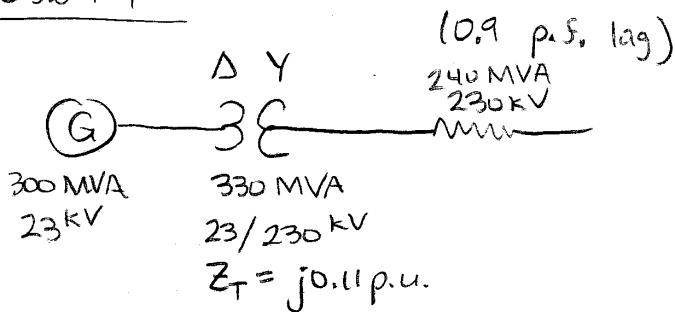 (0.9 p.f. lag)
Δ Y
240 MVA
230 kV
G
300 MVA
23 kV
330 MVA
23/230 kV
Z_T = j0.11 p.u.